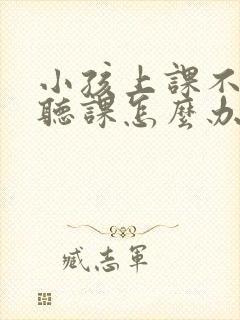 小孩上課不
聽課怎麼办
臧志軍